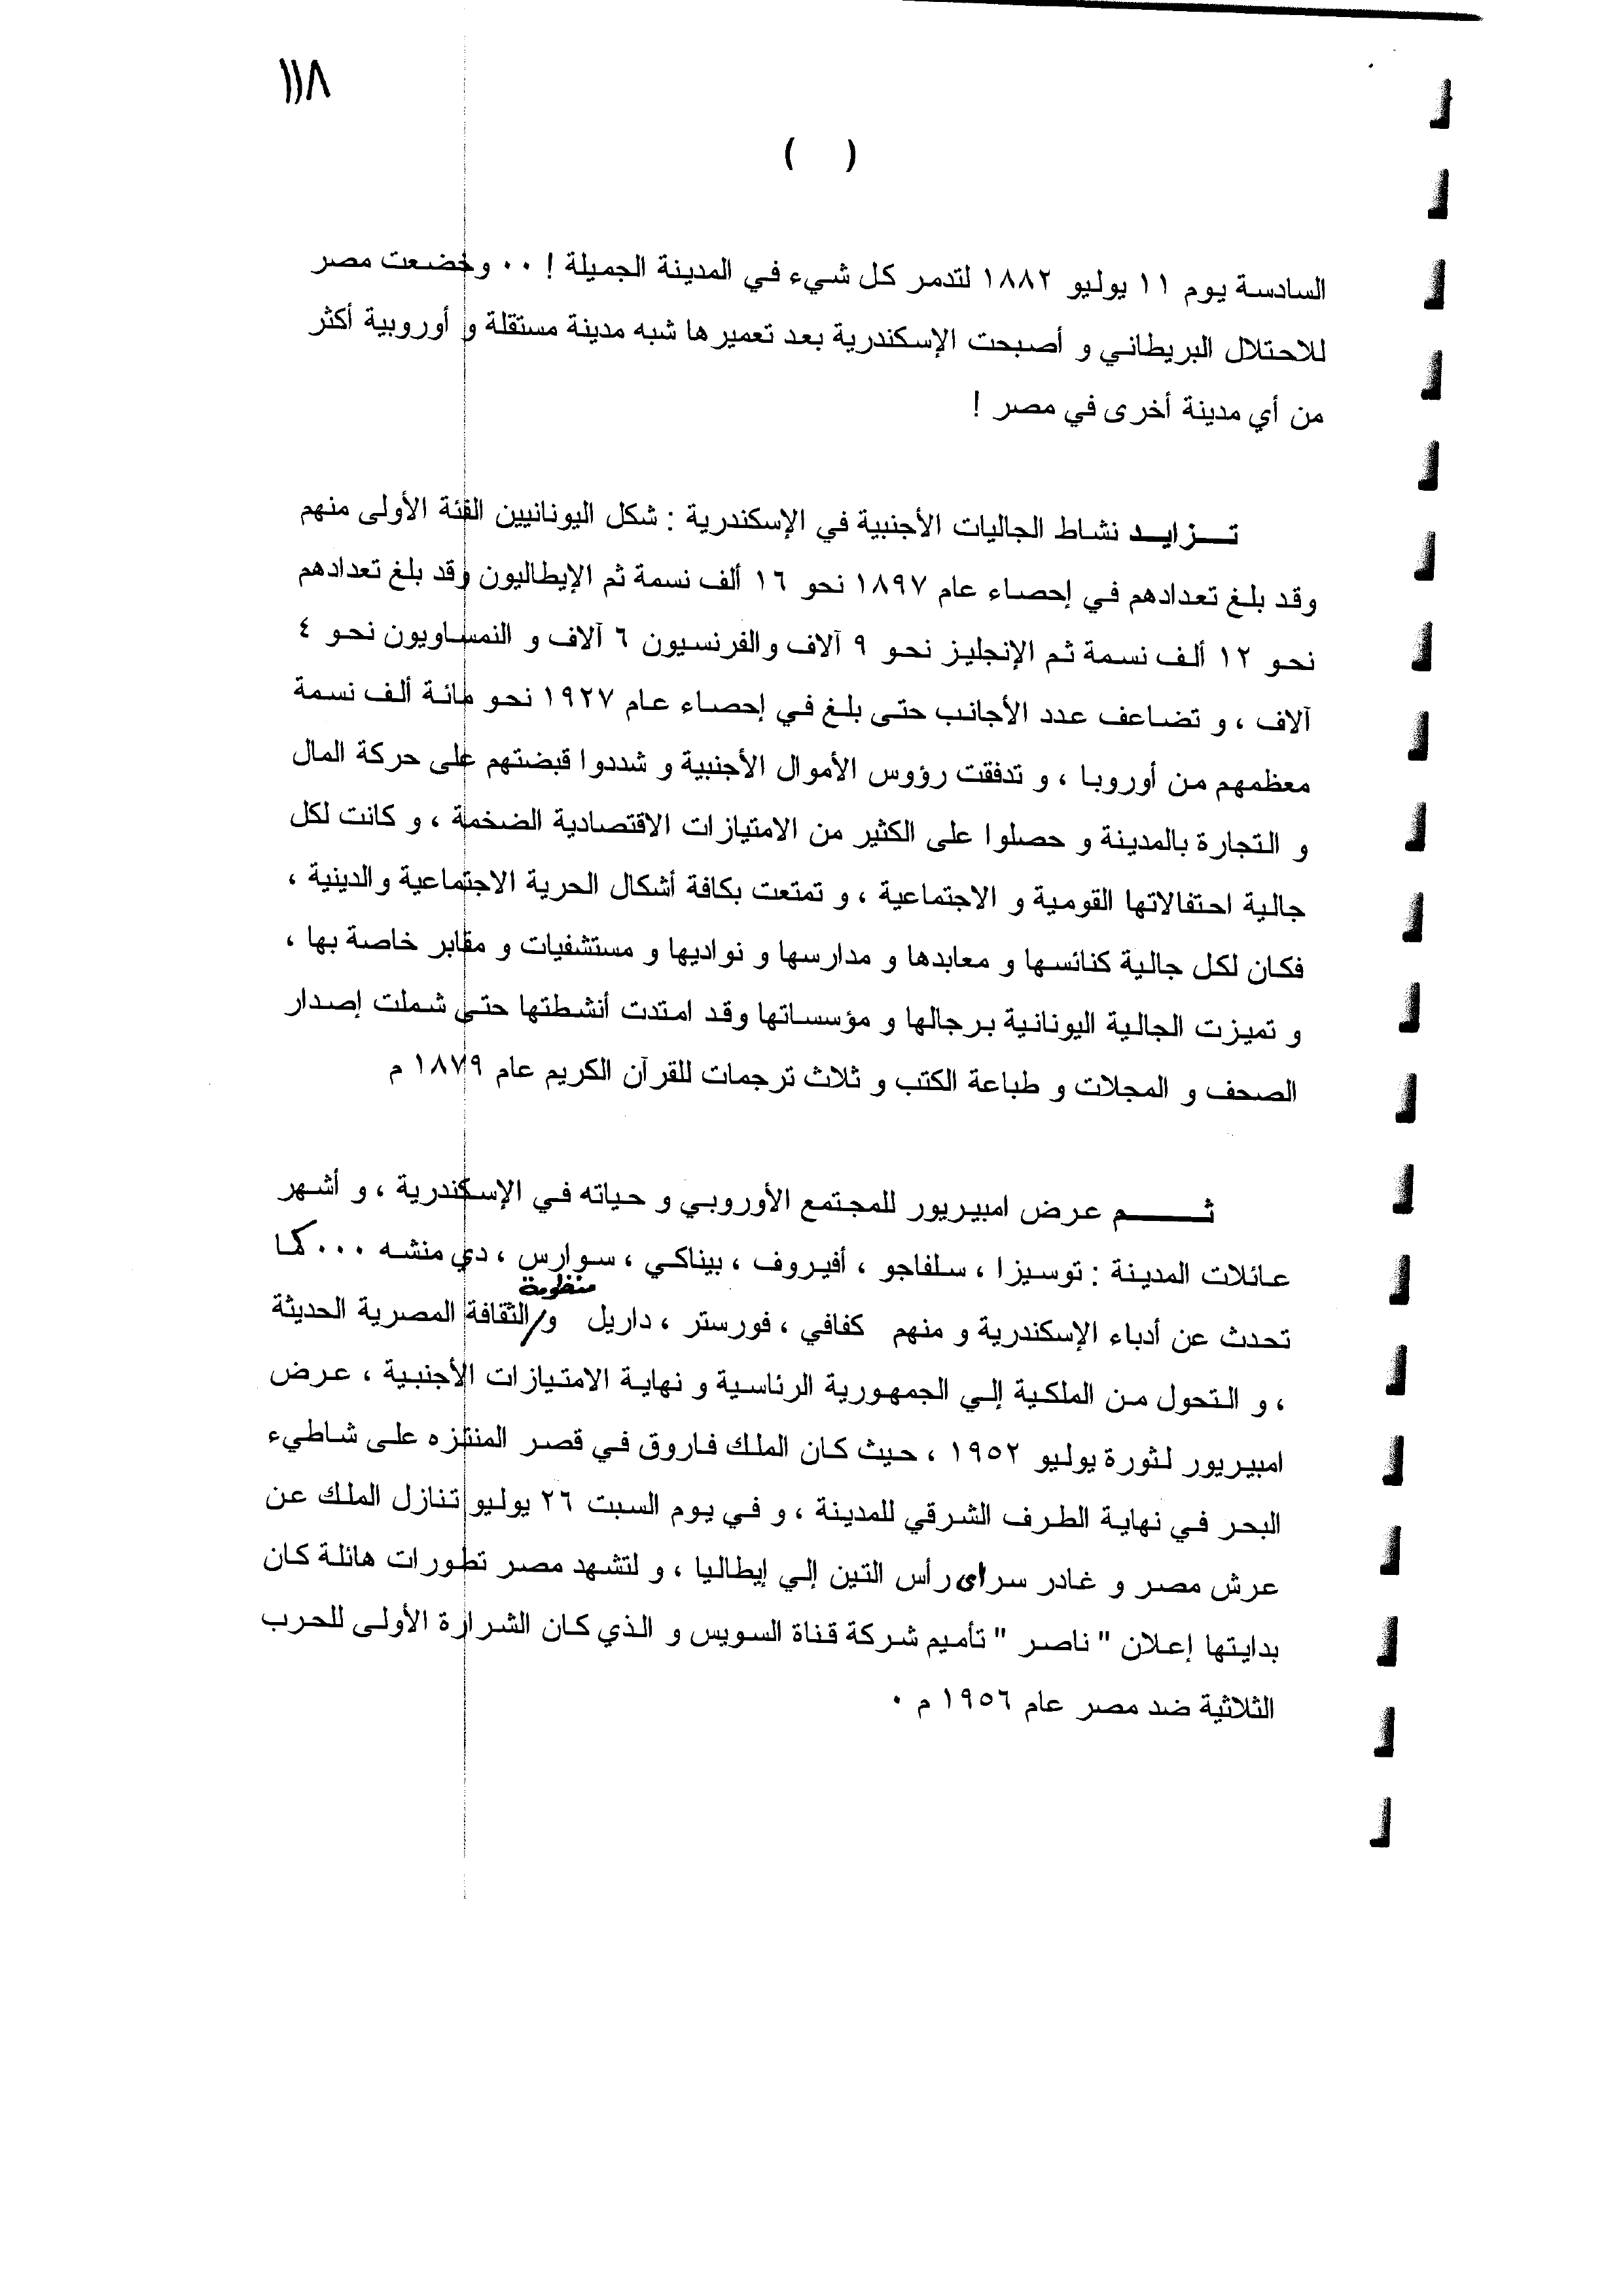 ١١٨
( )
السادسة يوم ١١ يوليو ١٨٨٢ لتدمر كل شيء في المدينة الجميلة ! ٠٠ وخضعت مصر
للاحتلال البريطاني و أصبحت الإسكندرية بعد تعميرها شبه مدينة مستقلة و أوروبية أكثر
من أي مدينة أخرى في مصر !
تـــزايــد نشاط الجاليات الأجنبية في الإسكندرية : شكل اليونانيين الفئة الأولى منهم
وقد بلغ تعدادهم في إحصاء عام ١٨٩٧ نحو ١٦ ألف نسمة ثم الإيطاليون وقد بلغ تعدادهم
نحو ١٢ ألف نسمة ثم الإنجليز نحو ٩ آلاف والفرنسيون ٦ آلاف و النمساويون نحو ٤
آلاف ، و تضاعف عدد الأجانب حتى بلغ في إحصاء عام ١٩٢٧ نحو مائة ألف نسمة
معظمهم من أوروبا ، و تدفقت رؤوس الأموال الأجنبية و شددوا قبضتهم على حركة المال
و التجارة بالمدينة و حصلوا على الكثير من الامتيازات الاقتصادية الضخمة ، و كانت لكل
جالية احتفالاتها القومية و الاجتماعية ، و تمتعت بكافة أشكال الحرية الاجتماعية والدينية ،
فكان لكل جالية كنائسها و معابدها و مدارسها و نواديها و مستشفيات و مقابر خاصة بها ،
و تميزت الجالية اليونانية برجالها و مؤسساتها وقد امتدت أنشطتها حتى شملت إصدار
الصحف و المجلات و طباعة الكتب و ثلاث ترجمات للقرآن الكريم عام ١٨٧٩ م
ثـــــــم عرض امبيريور للمجتمع الأوروبي و حياته في الإسكندرية ، و أشهر
عائلات المدينة : توسيزا ، سلفاجو ، أفيروف ، بيناكي ، سوارس ، دي منشه ٠٠٠ كما
منظومة
تحدث عن أدباء الإسكندرية و منهم كفافي ، فورستر ، داريل و/الثقافة المصرية الحديثة
، و التحول من الملكية إلي الجمهورية الرئاسية و نهاية الامتيازات الأجنبية ، عرض
امبيريور لثورة يوليو ١٩٥٢ ، حيث كان الملك فاروق في قصر المنتزه على شاطيء
البحر في نهاية الطرف الشرقي للمدينة ، و في يوم السبت ٢٦ يوليو تنازل الملك عن
عرش مصر و غادر سراى رأس التين إلي إيطاليا ، و لتشهد مصر تطورات هائلة كان
بدايتها إعلان " ناصر " تأميم شركة قناة السويس و الذي كان الشرارة الأولى للحرب
الثلاثية ضد مصر عام ١٩٥٦ م ٠